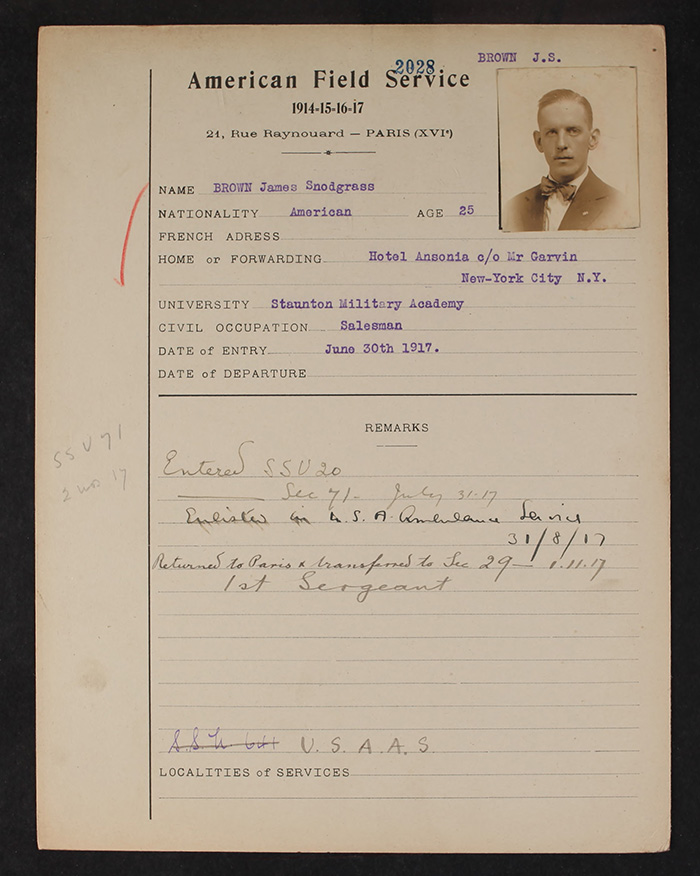 BROWN J.S.
2028
American Field Service
1914-15-16-17
21, Rue Raynouard — PARIS (XVIe)
NAME BROWN James Snodgrass
NATIONALITY American AGE 25
FRENCH ADRESS
HOME or FORWARDING Hotel Ansonia c/o Mr Garvin
New-York City N.Y.
UNIVERSITY Staunton Military Academy
CIVIL OCCUPATION Salesman
DATE of ENTRY June 30th 1917.
DATE of DEPARTURE
REMARKS
SSU 71
2 17
Entered SSU 20
Sec 71 - July 31-17
Enlisted in U.S.A. Ambulance Service
31/8/17
Returned to Paris & transferred to Sec 29 — 1.11.17
1st Sergeant
S.S.U. 641 U.S.A.A.S.
LOCALITIES of SERVICES